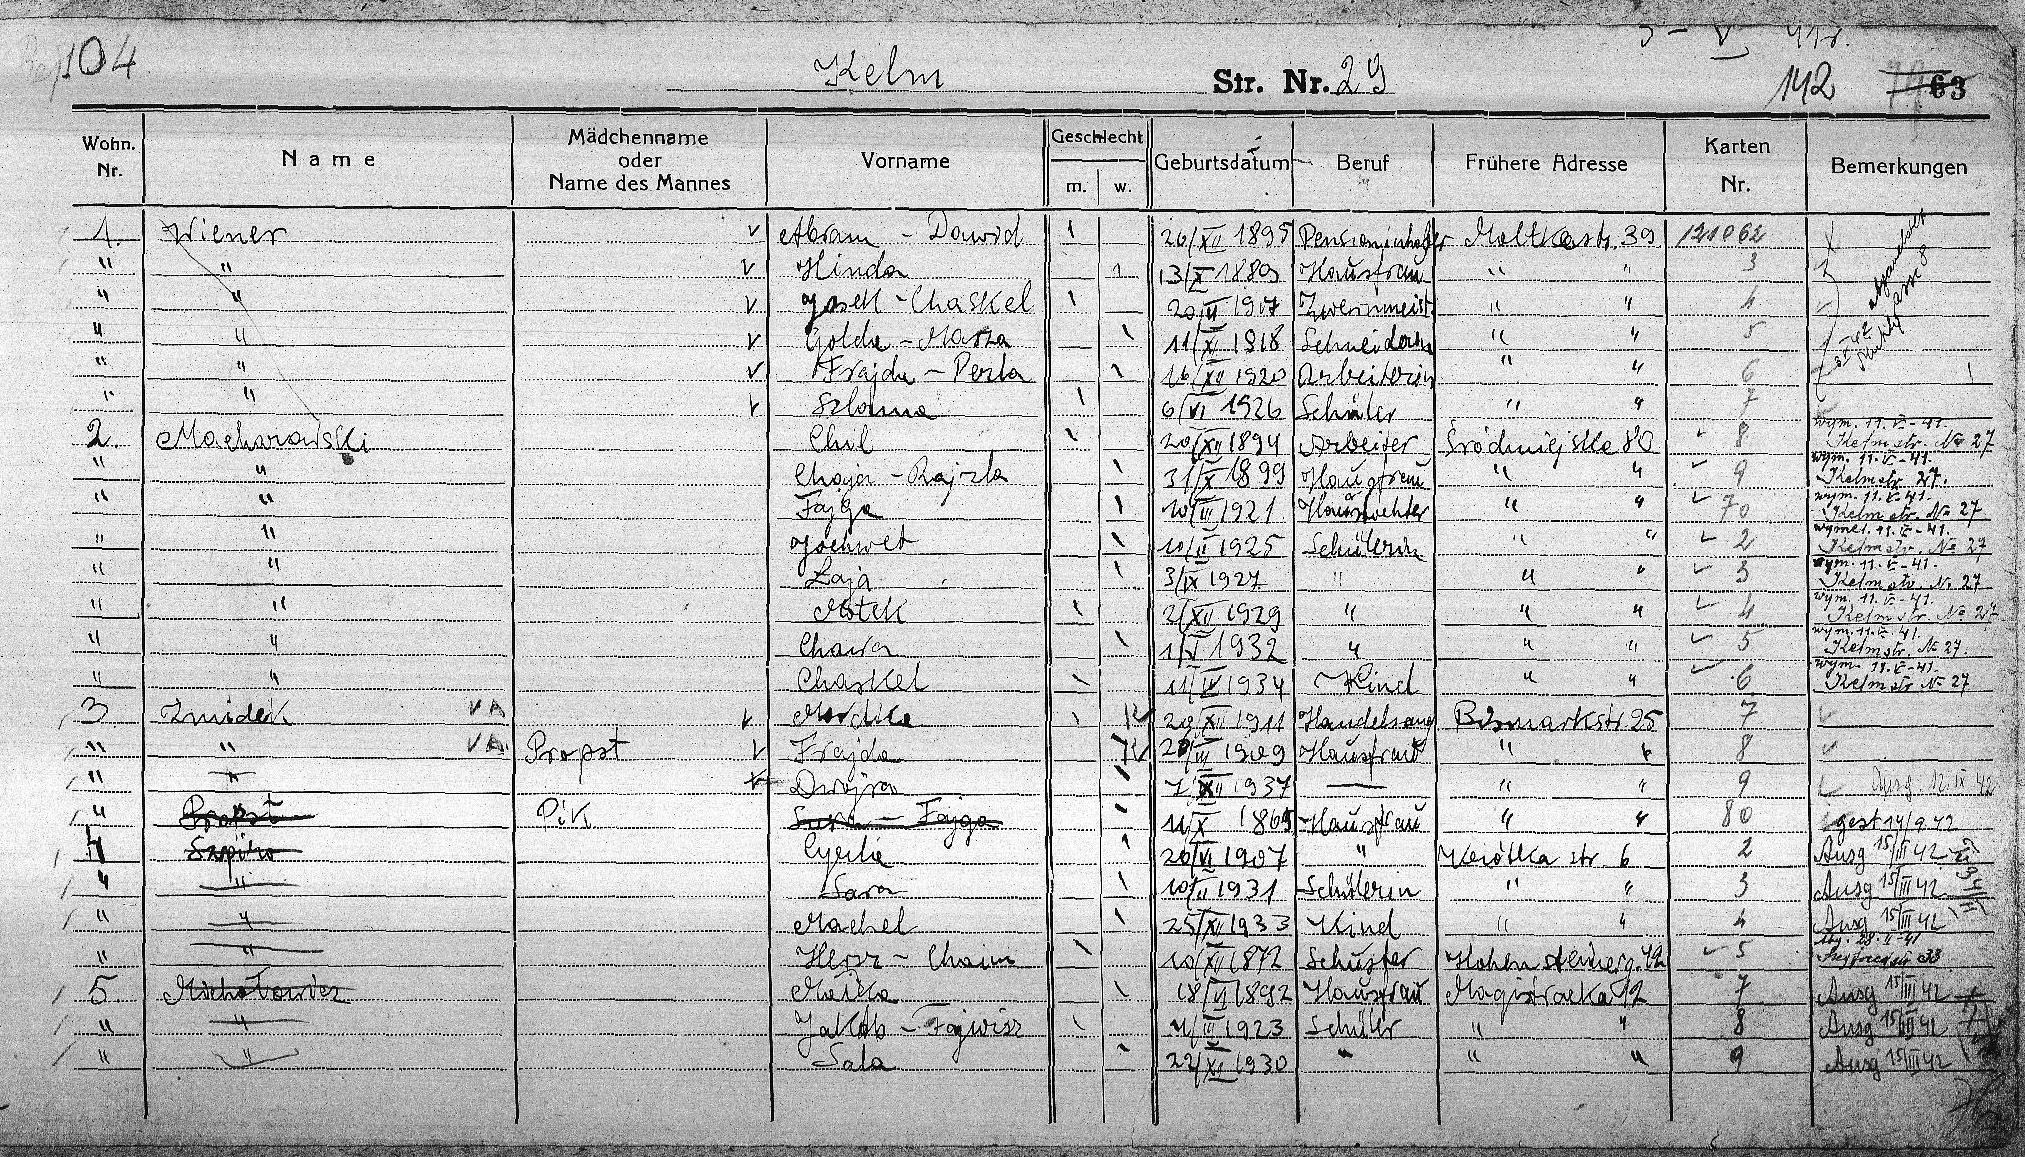 104
Kelm Str. Nr. 29
142 63
Wohn. Nr. Name Mädchenname oder Name des Mannes Vorname Geschlecht m. w. Geburtsdatum Beruf Frühere Adresse Karten Nr. Bemerkungen
1. Wiener v Abram - Dawid 1 26/XII 1895 Moltkestr. 39 121062
" " v Hinda 1 13/X 1889 Hausfrau " " 3
" " v Josek - Chaskel 1 " " 4
" " v Golda - Masza 1 11/XI 1918 Schneiderin " " 5
" " v Frajda - Perla 1 16/XII 1920 Arbeiterin " " 6
" " v Szlama 1 6/VI 1926 Schüler " " 7
2. Macharowski Chil 1 20/XII 1894 Arbeiter Śródmiejska 80 8 wym. 11.V-41. Kelmstr. No 27
" " Chaja - Rajzla 1 31/X 1899 Hausfrau " " 9 wym. 11.V-41. Kelmstr. 27.
" " Fajga 1 10/III 1921 Haustochter " " 70 wym. 11.V-41. Kelmstr. No 27
" " Jochwet 1 10/II 1925 Schülerin " " 2 11.V-41. Kelmstr. No 27
" " Łaja 1 3/IX 1927 " " " 3 wym. 11.V-41. Kelmstr. No 27
" " Motek 1 2/XII 1929 " " " 4 wym. 11.V-41. Kelmstr. No 27
" " Chawa 1 1932 " " " 5 wym. 11.V-41. Kelmstr. No 27.
" " Chaskel 1 11/IV 1934 Kind " " 6 wym. 11.V-41. Kelmstr. No 27
3 Zmidek VA v Mordka 1 1911 Bismarkstr. 25 7
" " VA Propst v Frajda 1909 Hausfrau " " 8
" " Dwojra 1 7/XII 1937 — " " 9 Ausg. 12.IX 42
" Propst Pik Sura - Fajga 1 11/X 1865 Hausfrau " " 80 gest 14/9.42
4 Szpiro Cyrla 1 20/VI 1907 " Krótka str 6 2 Ausg 15/III 42
" " Sara 1 10/II 1931 Schülerin " " 3 Ausg 15/III 42
" " Machel 1 25/XII 1933 Kind " " 4 Ausg 15/III 42
" " Hersz - Chaim 1 10/XII 1872 Schuster 5
5. Michałowicz Malka 1 18/VI 1892 Hausfrau Magistracka 12 7 Ausg 15/III 42
" " Jakób - Fajwisz 1 1923 Schüler " " 8 Ausg 15/III 42
" " Sala 1 22/XI 1930 " " " 9 Ausg 15/III 42